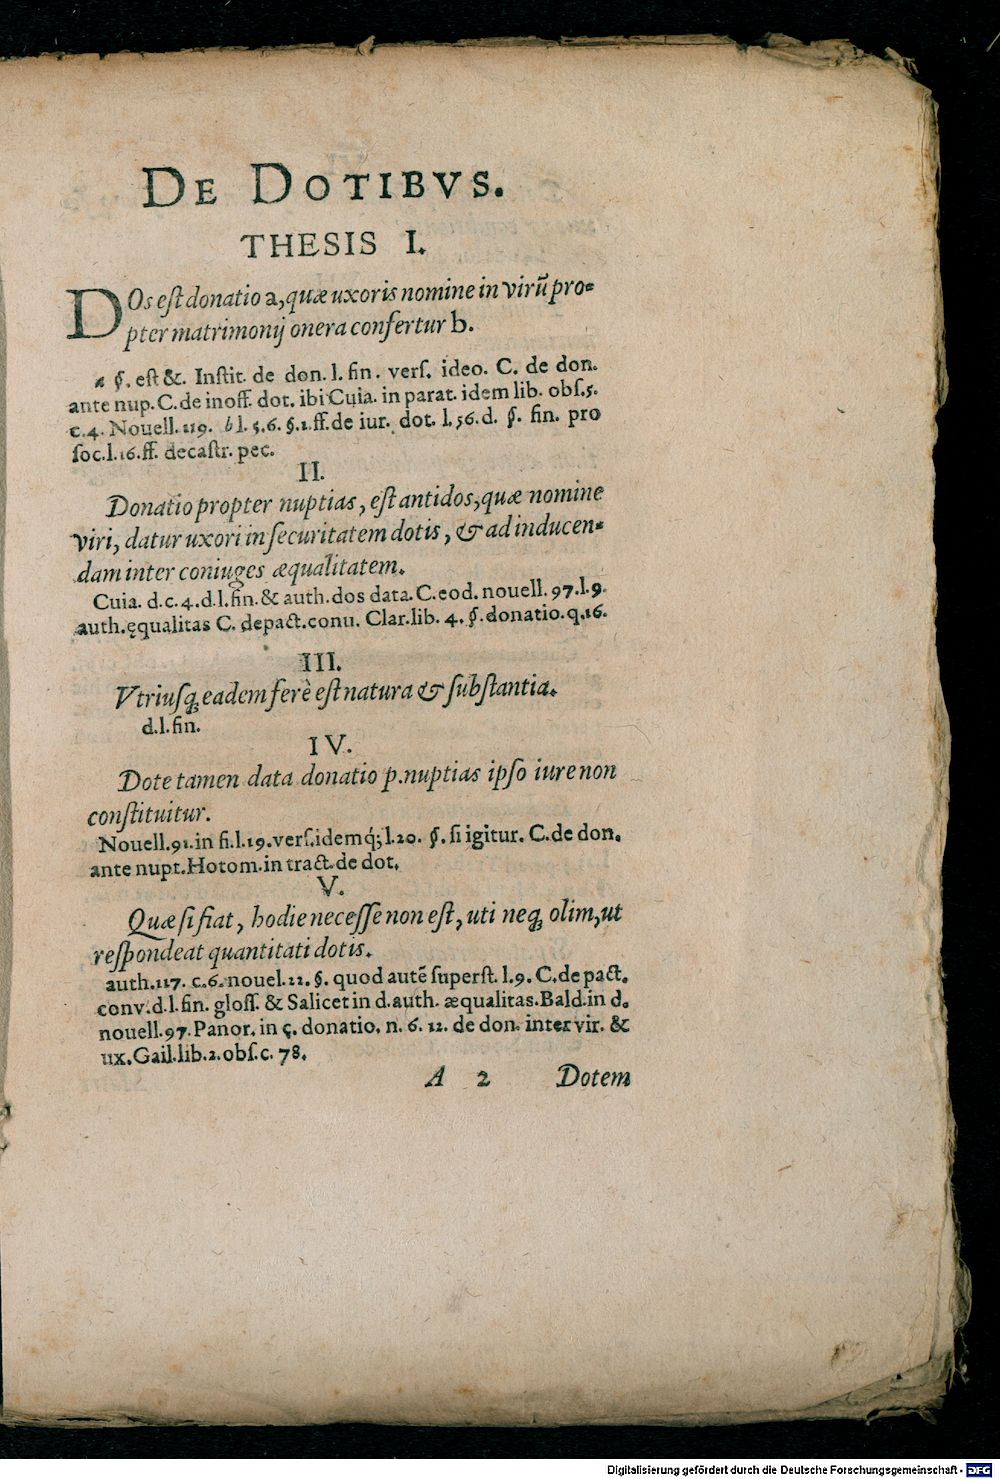 DE DOTIBVS.
THESIS I.
DOs est donatio a, quæ uxoris nomine in virũ pro-
pter matrimonij onera confertur b.
a §. est &. Instit. de don. l. fin. vers. ideo. C. de don.
ante nup. C. de inoff. dot. ibi Cuia. in parat. idem lib. obs. 5.
c. 4. Nouell. 119. b l. 5. 6. §. 1. ff. de iur. dot. l. 56. d. §. fin. pro
soc. l. 16. ff. de castr. pec.
II.
Donatio propter nuptias, est antidos, quæ nomine
viri, datur uxori in securitatem dotis, & ad inducen-
dam inter coniuges æqualitatem.
Cuia. d. c. 4. d. l. fin. & auth. dos data. C. eod. nouell. 97. l. 9.
auth. ęqualitas C. de pact. conu. Clar. lib. 4. §. donatio. q. 16.
III.
Vtriusq́ eadem ferè est natura & substantia.
d. l. fin.
IV.
Dote tamen data donatio p. nuptias ipso iure non
constituitur.
Nouell. 91. in fi. l. 19. vers. idemq́; l. 20. §. si igitur. C. de don.
ante nupt. Hotom. in tract. de dot.
V.
Quæ si fiat, hodie necesse non est, uti neq́ olim, ut
respondeat quantitati dotis.
auth. 117. c. 6. nouel. 22. §. quod autē superst. l. 9. C. de pact.
conv. d. l. fin. gloss. & Salicet in d. auth. æqualitas. Bald. in d.
nouell. 97. Panor. in ç. donatio. n. 6. 12. de don. inter vir. &
ux. Gail. lib. 2. obs. c. 78.
A 2 Dotem
Digitalisierung gefördert durch die Deutsche Forschungsgemeinschaft - DFG